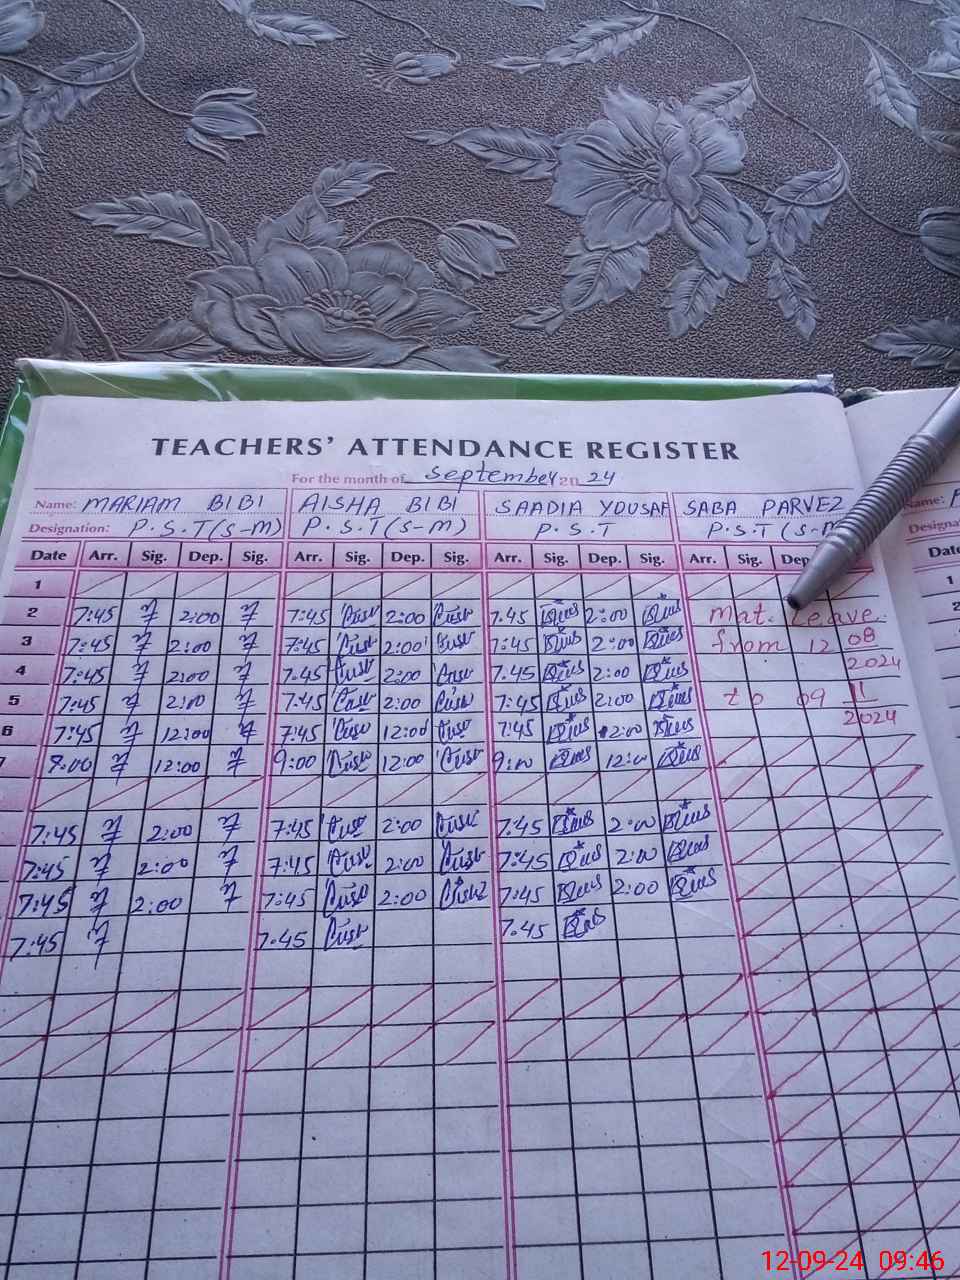 TEACHERS' ATTENDANCE REGISTER
For the month of September 20 24
Name: MARIAM BIBI AISHA BIBI SAADIA YOUSAF SABA PARVEZ Name:
Designation: P.S.T (S-M) P.S.T (S-M) P.S.T P.S.T (S-M
Date Arr. Sig. Dep. Sig. Arr. Sig. Dep. Sig. Arr. Sig. Dep. Sig. Arr. Sig. Dep
1 1
2 7:45 2:00 7:45 2:00 7.45 2:00 Mat. Leave.
3 7:45 2:00 7:45 2:00 7:45 2:00 from 12 08
4 7:45 2:00 7.45 2:00 7.45 2:00 2024
5 7:45 2:00 7:45 2:00 7:45 2:00 to 09 11
6 7:45 12:00 7:45 12:00 7:45 12:00 2024
7 12:00 9:00 12:00 9:00 12:00
7:45 2:00 7:45 2:00 7.45 2:00
7:45 2:00 7:45 2:00 7:45 2:00
7:45 2:00 7:45 2:00 7:45 2:00
7:45 7.45 7.45
12-09-24 09:46